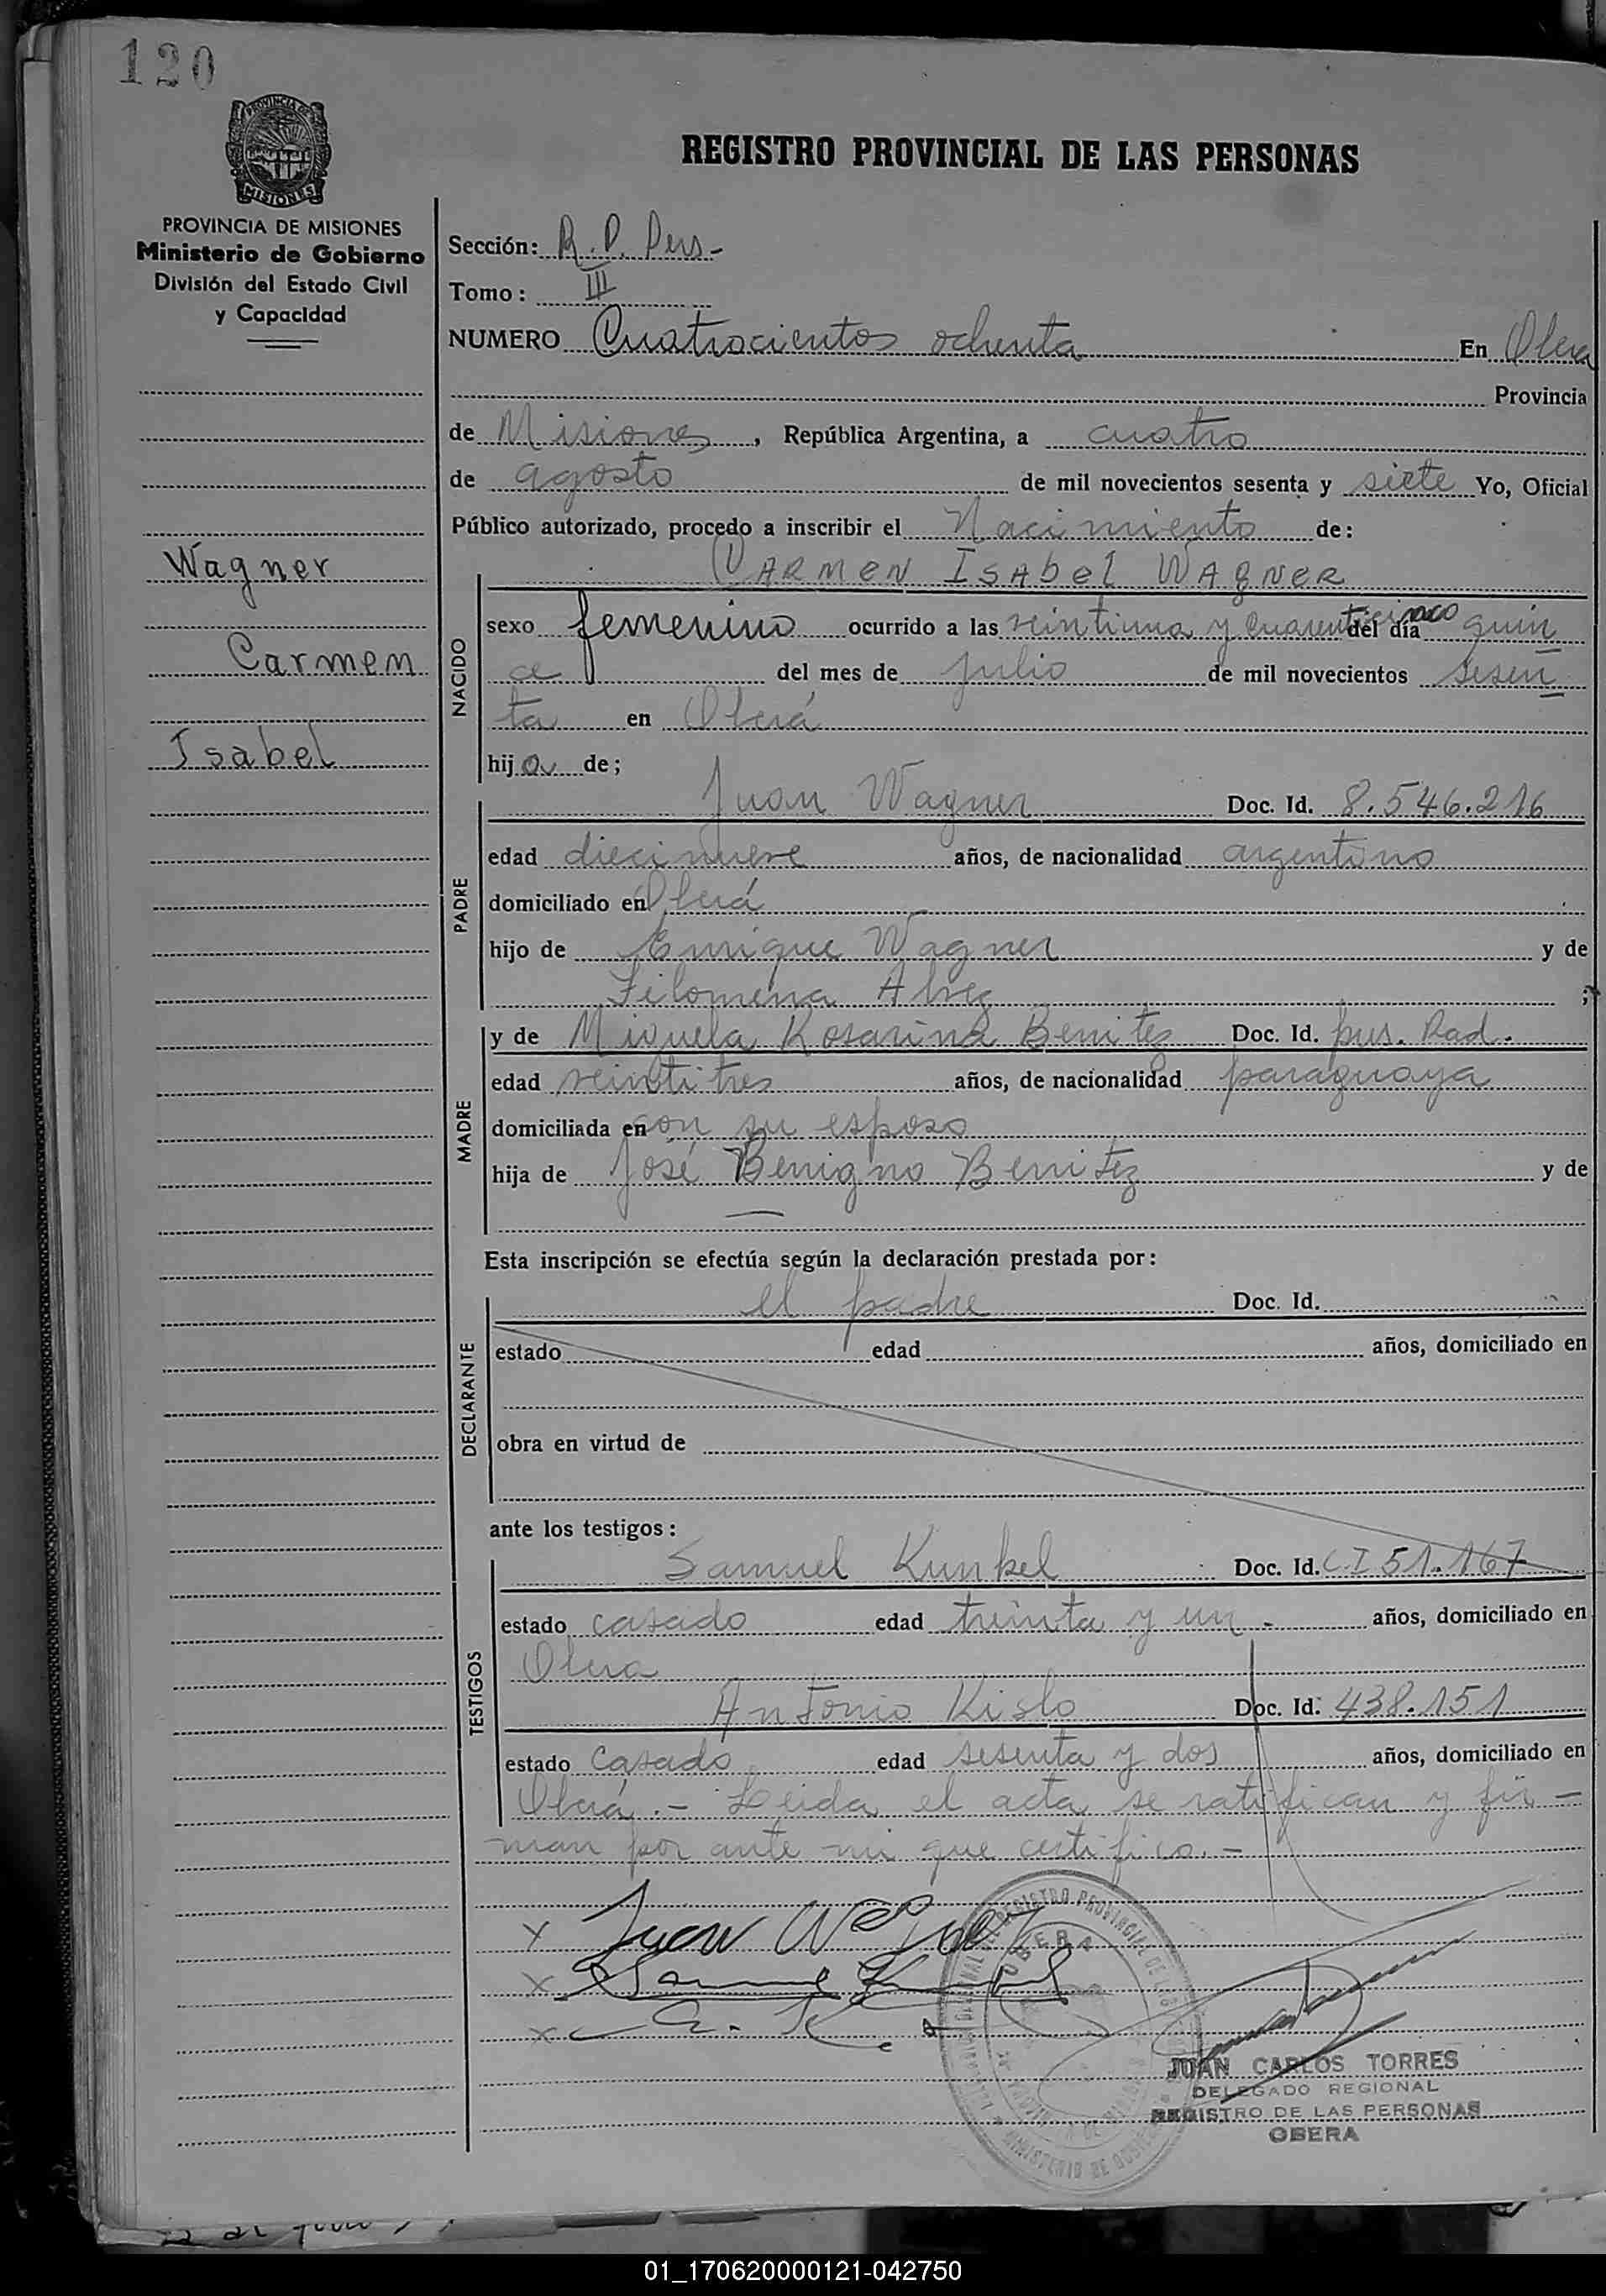 120
REGISTRO PROVINCIAL DE LAS PERSONAS
PROVINCIA DE MISIONES
Ministerio de Gobierno
División del Estado Civil
y Capacidad
Wagner
Carmen
Isabel
Sección: R. P. Pers-
Tomo: III
NUMERO Cuatrocientos ochenta En Obera
Provincia
de Misiones, República Argentina, a cuatro
de agosto de mil novecientos sesenta y siete Yo, Oficial
Público autorizado, procedo a inscribir el Nacimiento de:
CARMEN ISAbel WAgNER
NACIDO
sexo femenino ocurrido a las veintiuna y cuarenticinco del día quin
ce del mes de julio de mil novecientos sesen
ta en Oberá
hija de;
PADRE
Juan Wagner Doc. Id. 8.546.216
edad diecinueve años, de nacionalidad argentino
domiciliado en Oberá
hijo de Enrique Wagner y de
Filomena Alvez ;
MADRE
y de Miguela Rosarina Benitez Doc. Id. pres. Rad.
edad veintitres años, de nacionalidad paraguaya
domiciliada en con su esposo
hija de José Benigno Benitez y de
—
Esta inscripción se efectúa según la declaración prestada por:
DECLARANTE
el padre Doc. Id.
estado edad años, domiciliado en
obra en virtud de
ante los testigos:
TESTIGOS
Samuel Kunkel Doc. Id. C.I 51.167
estado casado edad treinta y un - años, domiciliado en
Obera
Antonio Kislo Doc. Id. 438.151
estado casado edad sesenta y dos años, domiciliado en
Oberá.- Leida el acta se ratifican y fir-
man por ante mi que certifico.-
x Juan Wagner
x Samuel Kunkel
x A. K
REGISTRO PROVINCIAL DE LAS
OBERA
MINISTERIO DE GOBIERNO
JUAN CARLOS TORRES
DELEGADO REGIONAL
REGISTRO DE LAS PERSONAS
OBERA
01_170620000121-042750